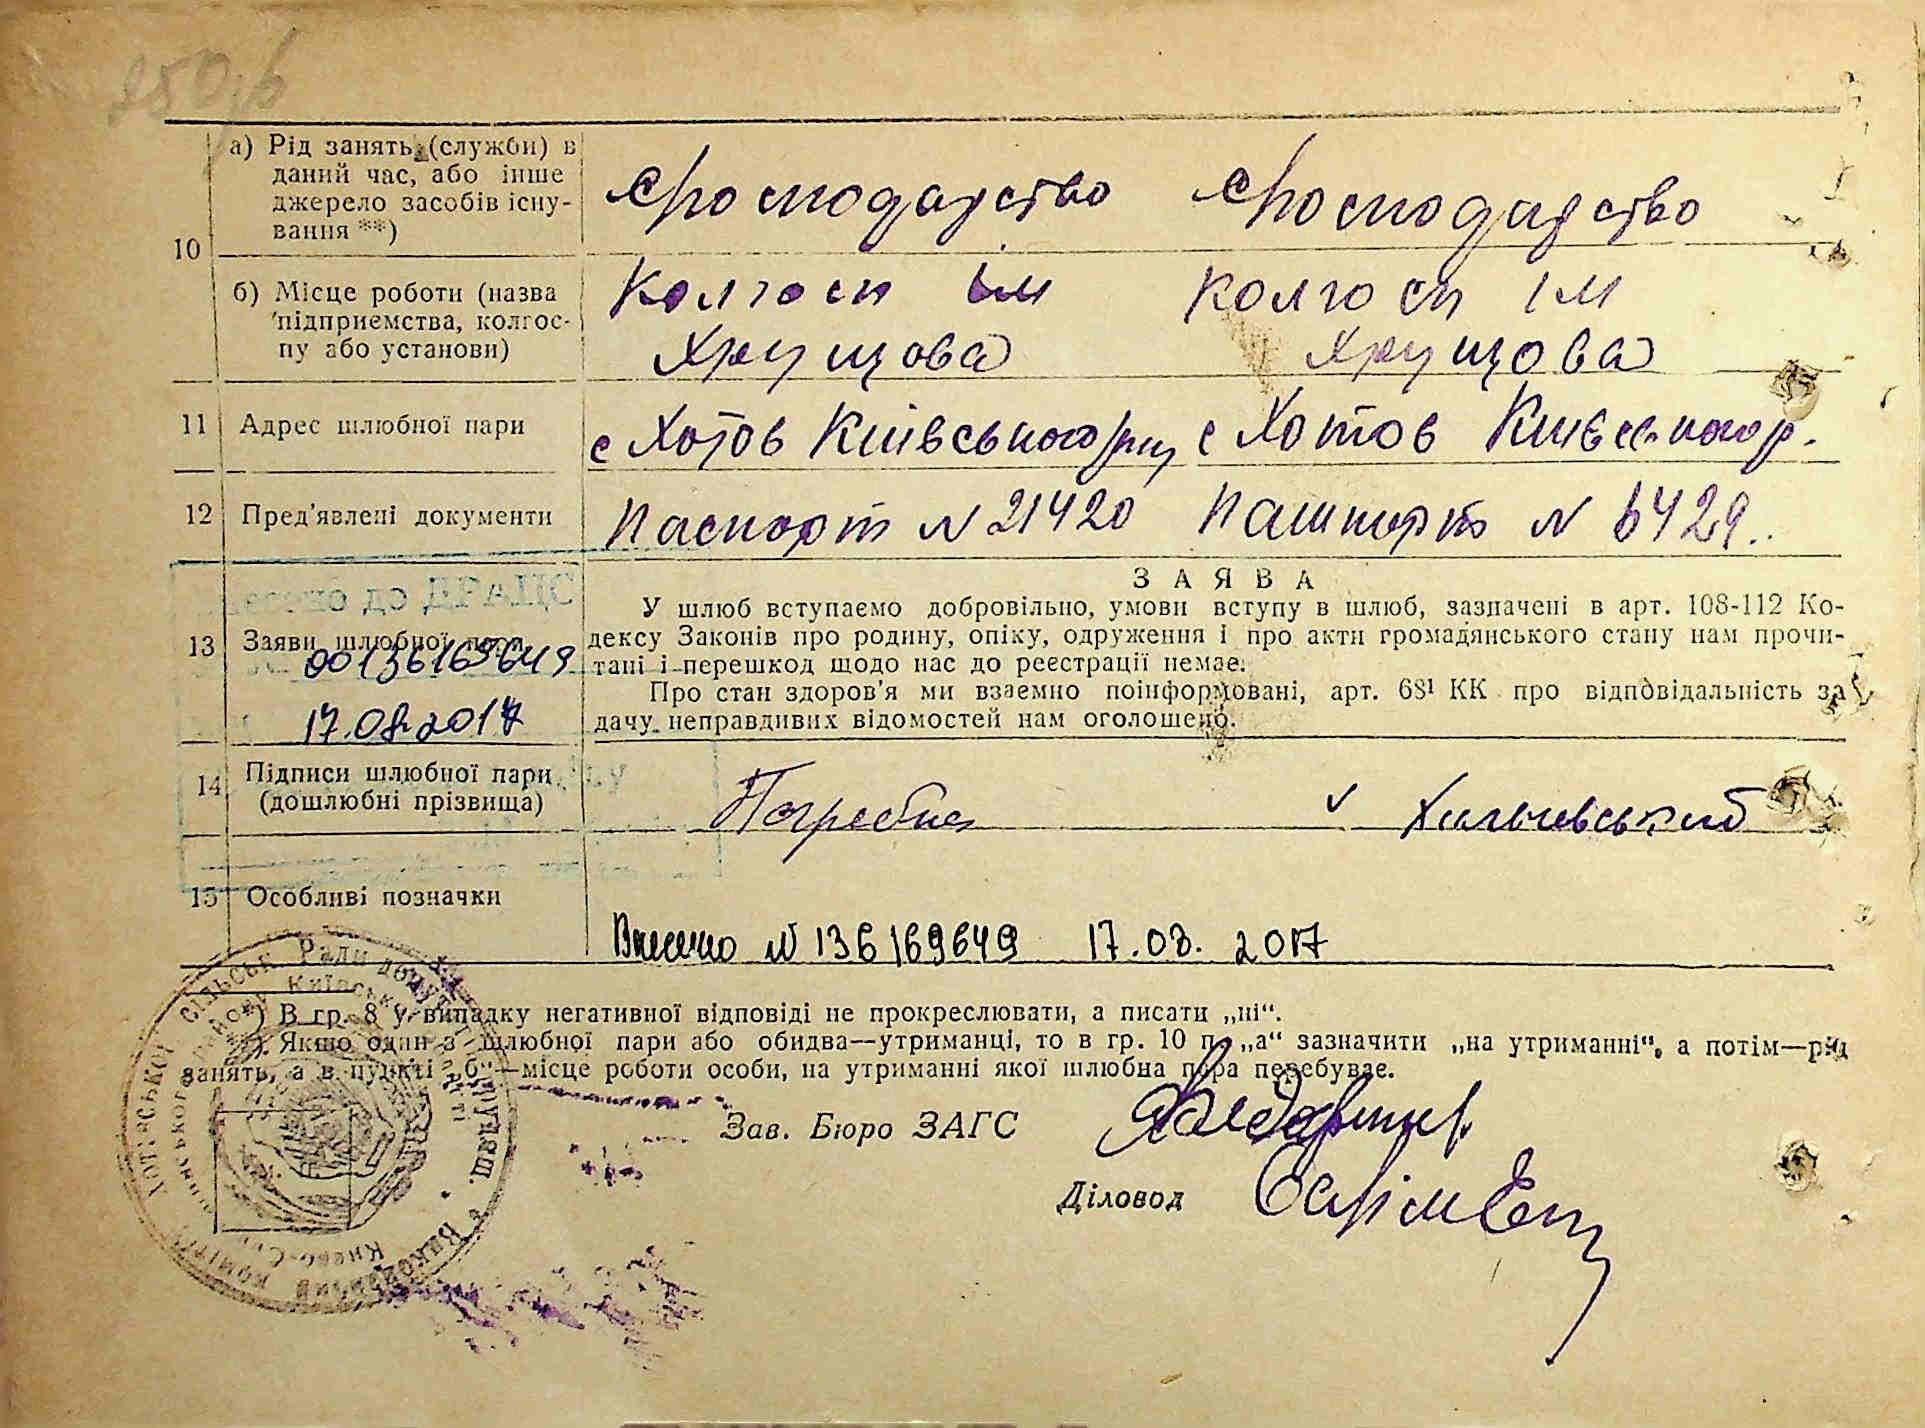 10
а) Рід занять (служби) в
даний час, або інше
джерело засобів існу-
вання **)
господарство господарство
б) Місце роботи (назва
підприємства, колгос-
пу або установи)
Колгосп ім колгосп ім
Хрущова Хрущова
11 Адрес шлюбної пари
с Хотов Київського р-ну с Хотов Київського р.
12 Пред'явлені документи
Паспорт N 21420 Пашпорт N 6429..
13 Заяви шлюбної пари
00136169649
17.08.2017
ЗАЯВА
У шлюб вступаємо добровільно, умови вступу в шлюб, зазначені в арт. 108-112 Ко-
дексу Законів про родину, опіку, одруження і про акти громадянського стану нам прочи-
тані і перешкод щодо нас до реєстрації немає.
Про стан здоров'я ми взаємно поінформовані, арт. 68¹ КК про відповідальність за
дачу неправдивих відомостей нам оголошено.
14 Підписи шлюбної пари
(дошлюбні прізвища)
Погребна
15 Особливі позначки
Внесено N 136169649 17.08.2017
*) В гр. 8 у випадку негативної відповіді не прокреслювати, а писати „ні“.
Якщо один з шлюбної пари або обидва—утриманці, то в гр. 10 п. „а“ зазначити „на утриманні“, а потім—рід
занять, а в пункті „б“—місце роботи особи, на утриманні якої шлюбна пара перебуває.
Зав. Бюро ЗАГС
Діловод